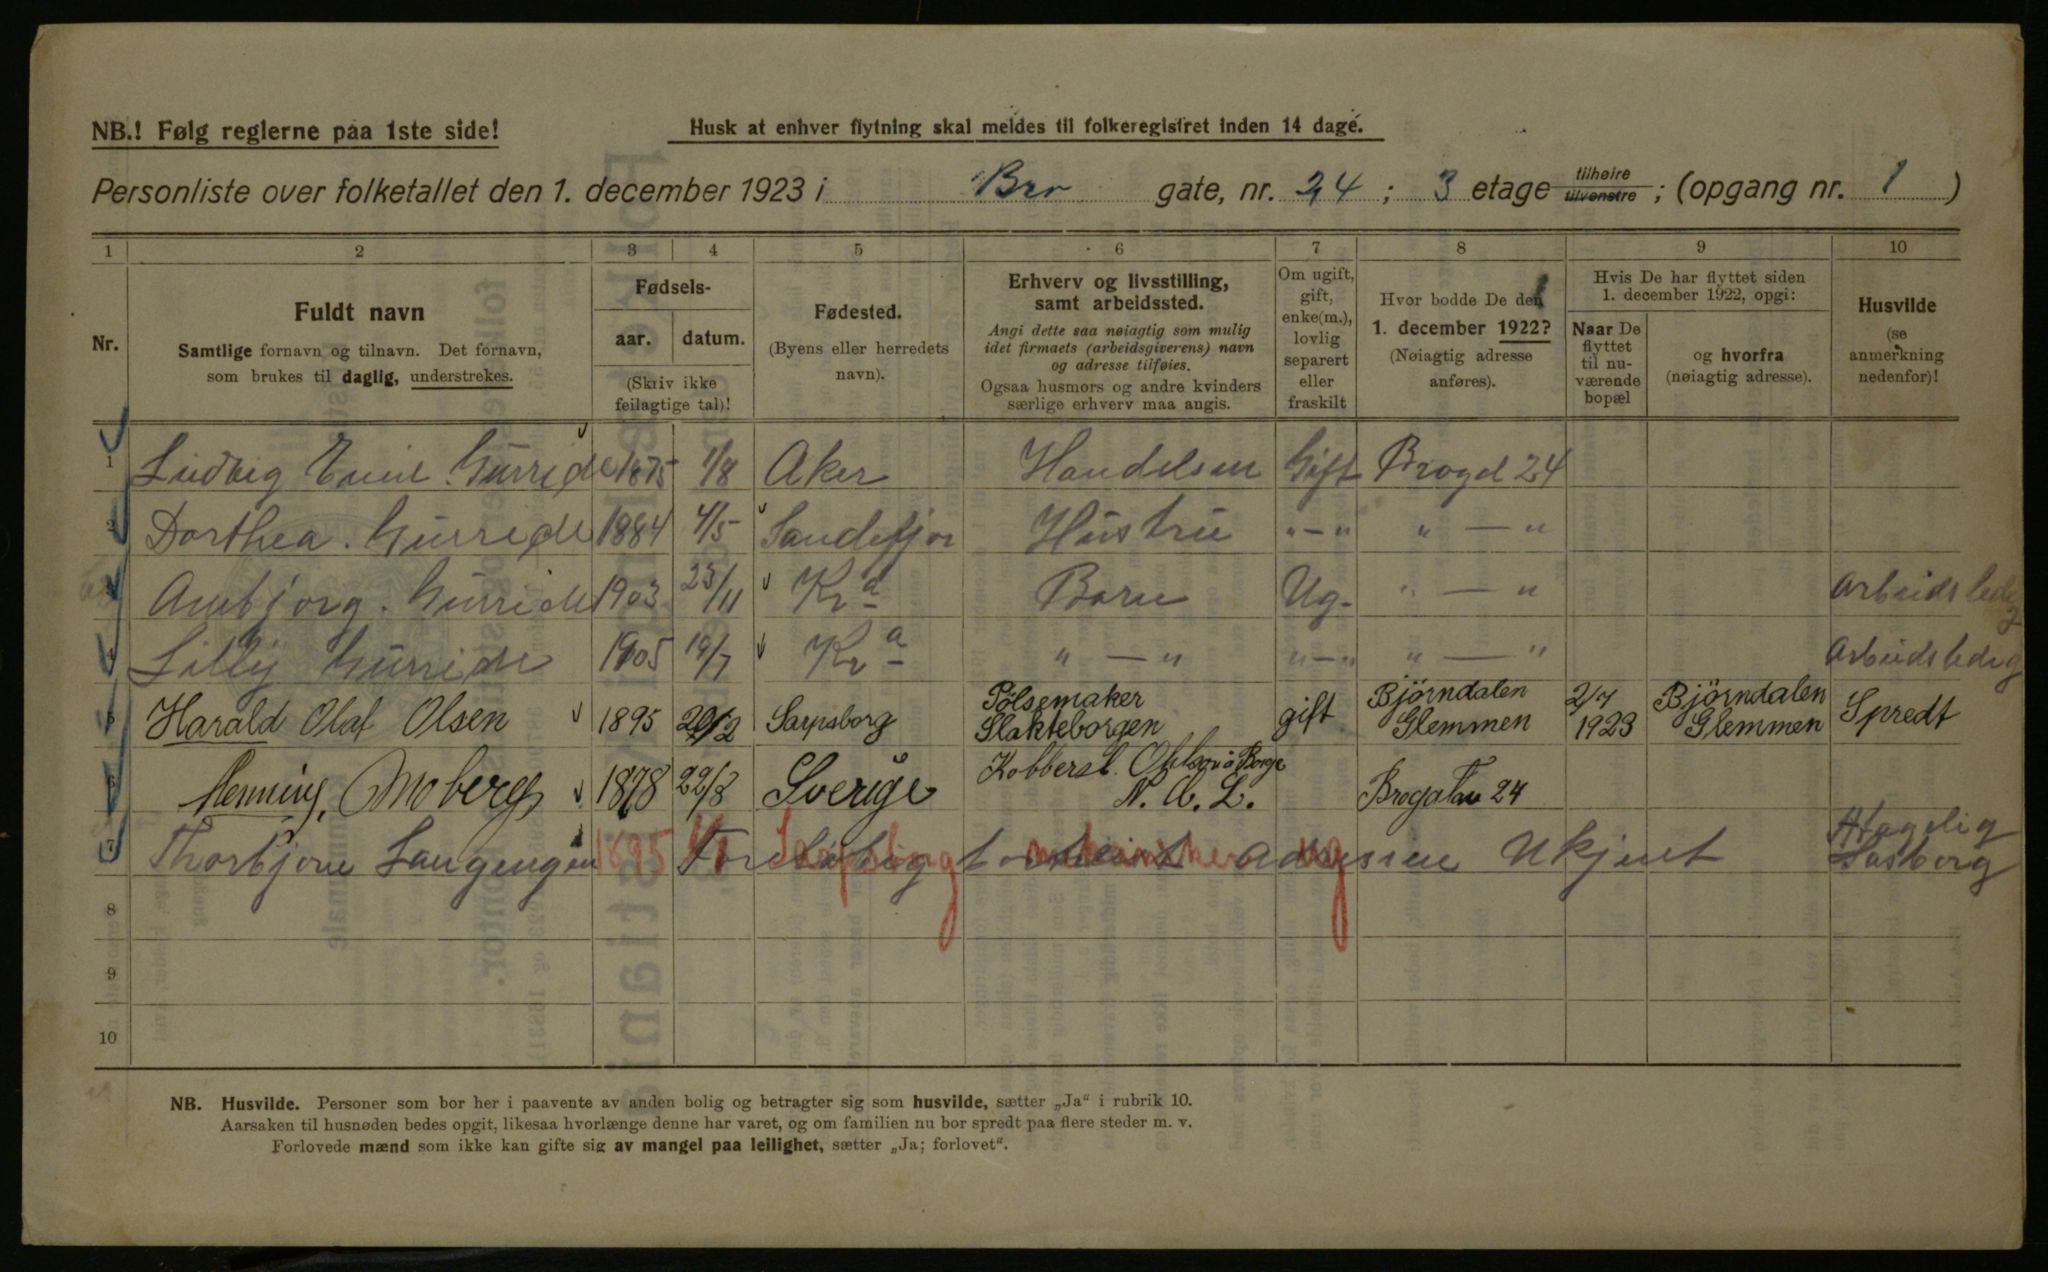 NB.! Følg reglerne paa 1ste side!
Husk at enhver flytning skal meldes til folkeregistret inden 14 dage.
Personliste over folketallet den 1. december 1923 i Bro gate, nr. 24 ; 3 etage tilhøire tilvenstre ; (opgang nr. 1 )
1 2 3 4 5 6 7 8 9 10
Nr.
Fuldt navn
Samtlige fornavn og tilnavn. Det fornavn,
som brukes til daglig, understrekes.
Fødsels-
aar. datum.
(Skriv ikke
feilagtige tal)!
Fødested.
(Byens eller herredets
navn).
Erhverv og livsstilling,
samt arbeidssted.
Angi dette saa nøiagtig som mulig
idet firmaets (arbeidsgiverens) navn
og adresse tilføies.
Ogsaa husmors og andre kvinders
særlige erhverv maa angis.
Om ugift,
gift,
enke(m.),
lovlig
separert
eller
fraskilt
Hvor bodde De den
1. december 1922?
(Nøiagtig adresse
anføres).
Hvis De har flyttet siden
1. december 1922, opgi:
Naar De
flyttet
til nu-
værende
bopæl
og hvorfra
(nøiagtig adresse).
Husvilde
(se
anmerkning
nedenfor)!
1 Ludvig Emil Gurride 1875 1/8 Aker Handelsm Gift Brogd 24
2 Dorthea. Gurride 1884 4/5 Sandefjor Hustru "-" " — "
3 Annbjorg. Gurride 1903 23/11 Kra Barn Ug- " — " Arbeidsledig
4 Lilly Gurride 1905 19/7 Kra " — " "—" " — " Arbeidsledig
5 Harald Olaf Olsen 1895 20/2 Sarpsborg Pølsemaker Slakteborgen gift Bjørndalen Glemmen 2/7 1923 Bjørndalen Glemmen Spredt
6 Henning, Moberg 1878 22/3 Sverige Kobbersl. N. A. L. Brogatan 24
7 Thorbjorn Langengen 1895 Sarpsborg ug Adressen Ukjent
8
9
10
NB. Husvilde. Personer som bor her i paavente av anden bolig og betragter sig som husvilde, sætter „Ja" i rubrik 10.
Aarsaken til husnøden bedes opgit, likesaa hvorlænge denne har varet, og om familien nu bor spredt paa flere steder m. v.
Forlovede mænd som ikke kan gifte sig av mangel paa leilighet, sætter „Ja; forlovet".